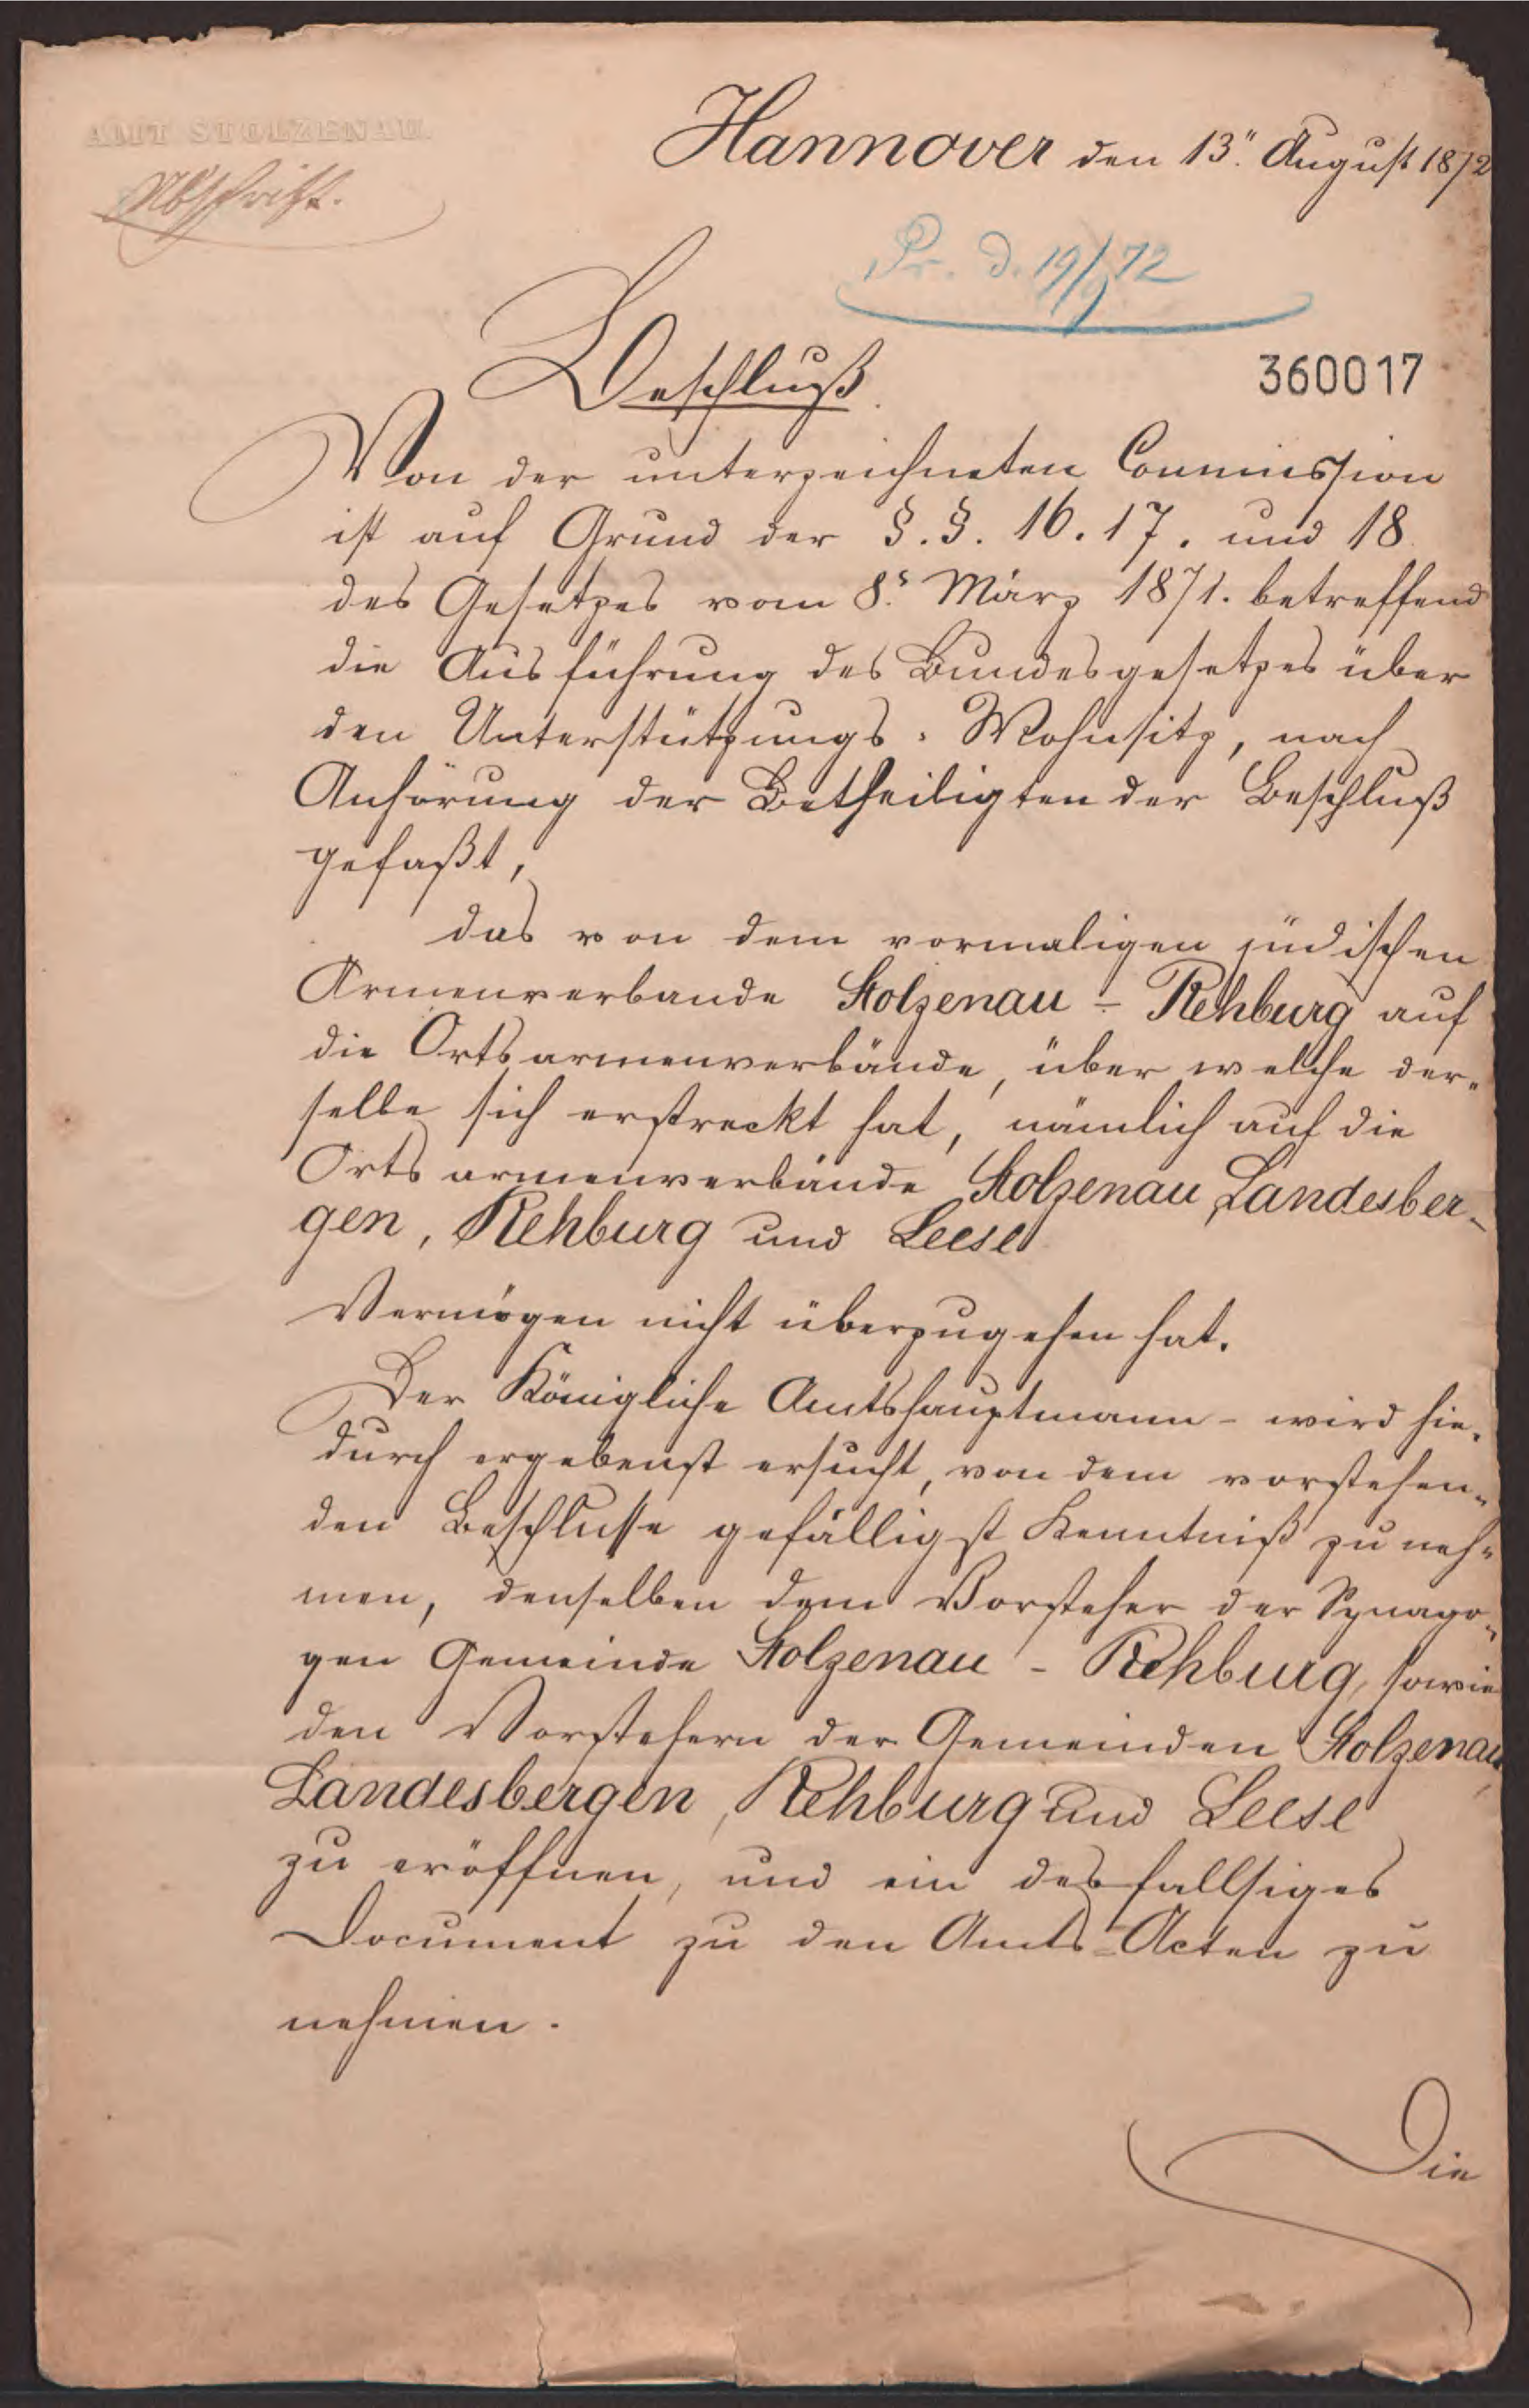 AMT STOLZENAU.
Abschrift.
Hannover den 13.″ August 1872
Pr. d. 19/9 72
Beschluß.
360017
Von der unterzeichneten Commission
ist auf Grund der §.§. 16. 17. und 18
des Gesetzes vom 8.ˢ März 1871. betreffend
die Ausführung des Bundesgesetzes über
den Unterstützungs-Wohnsitz, nach
Anhörung der Betheiligten der Beschluß
gefaßt,
das von dem vormaligen jüdischen
Armenverbande Stolzenau - Rehburg auf
die Ortsarmenverbände, über welche der-
selbe sich erstreckt hat, nämlich auf die
Ortsarmenverbände Stolzenau, Landesber-
gen, Rehburg und Leese
Vermögen nicht überzugehen hat.
Der Königliche Amtshauptmann - wird hie-
durch ergebenst ersucht, von dem vorstehen-
den Beschlusse gefälligst Kenntniß zu neh-
men, denselben dem Vorsteher der Synago-
gen Gemeinde Stolzenau - Rehburg, sowie
den Vorstehern der Gemeinden Stolzenau,
Landesbergen, Rehburg und Leese
zu eröffnen, und ein desfallsiges
Document zu den Amts-Acten zu
nehmen.
Die